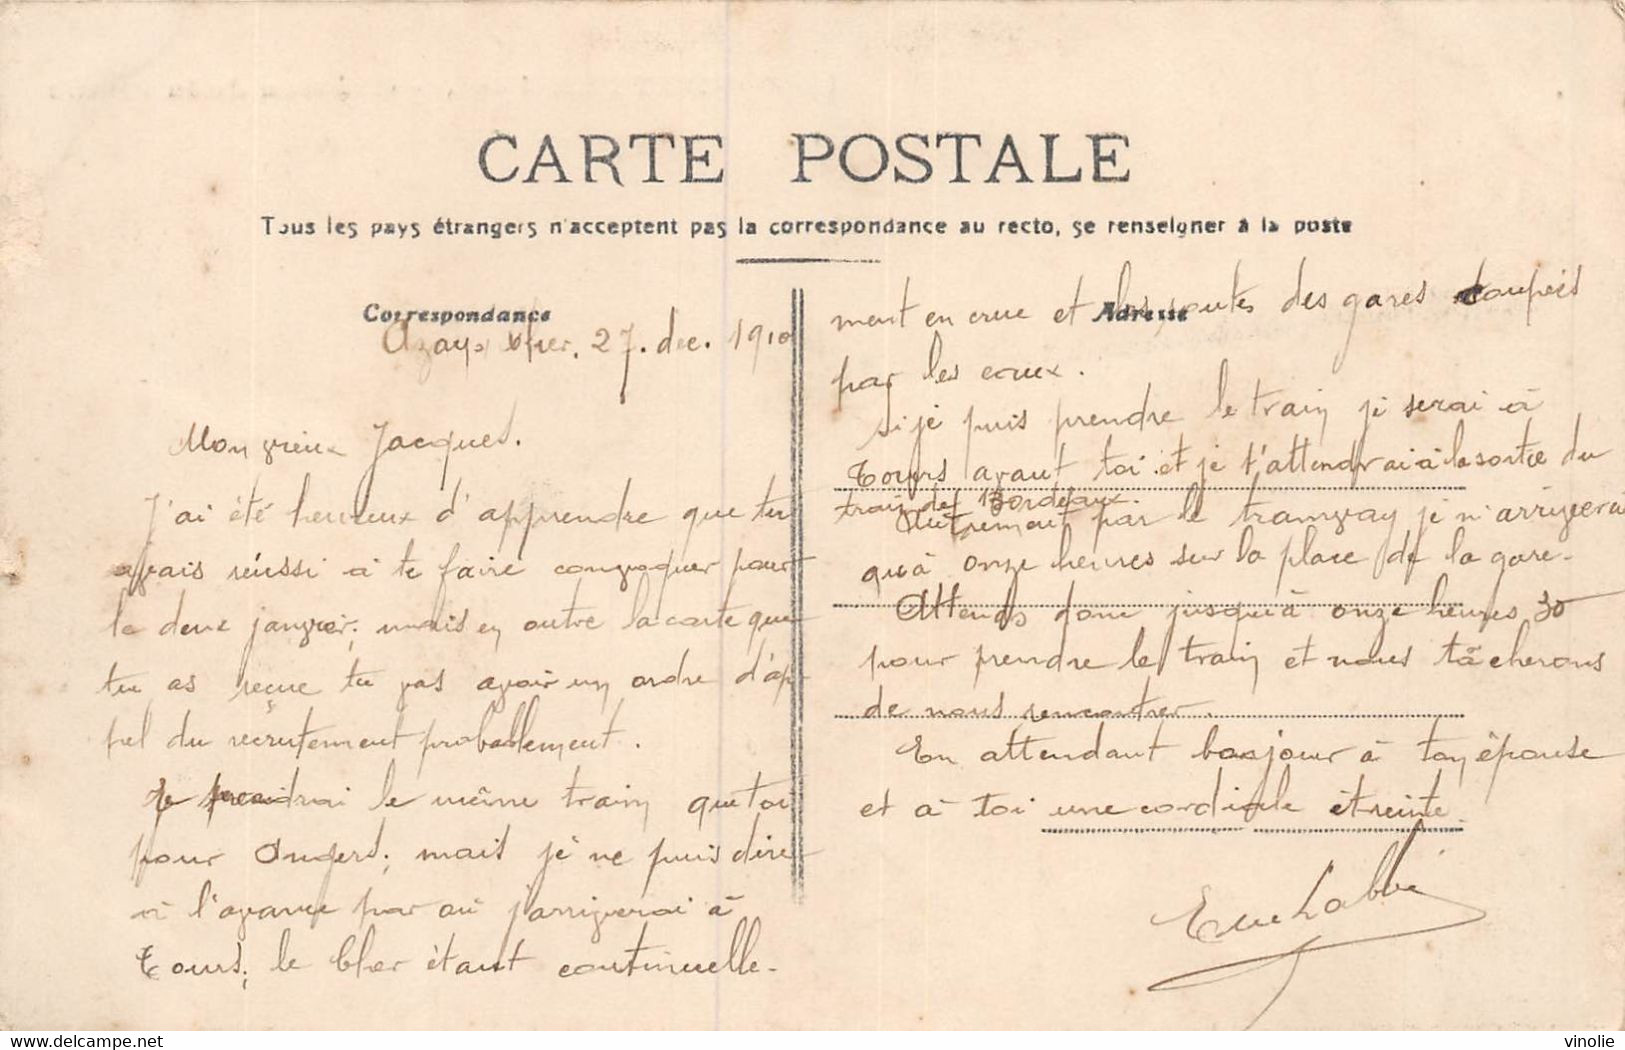 CARTE POSTALE
Tous les pays étrangers n'acceptent pas la correspondance au recto, se renseigner à la poste
Correspondance
Azay s/ Cher, 27. dec. 1910
Mon vieux Jacques.
J'ai été heureux d'apprendre que tu
avais réussi à te faire convoquer pour
le deux janvier; mais en outre la carte que
tu as reçue tu vas avoir un ordre d'ap-
pel du recrutement probablement.
Je prendrai le même train que toi
pour Angers; mais je ne puis dire
à l'avance par où j'arriverai à
Tours; le Cher étant continuelle-
Adresse
ment en crue et les routes des gares coupées
par les eaux.
Si je puis prendre le train je serai à
Tours avant toi et je t'attendrai à la sortie du
train de Bordeaux.
Autrement par le tramway je n'arriverai
qu'à onze heures sur la place de la gare.
Attends donc jusqu'à onze heures 30
pour prendre le train et nous tâcherons
de nous rencontrer.
En attendant bonjour à ton épouse
et à toi une cordiale étreinte.
Labbé
vinolie